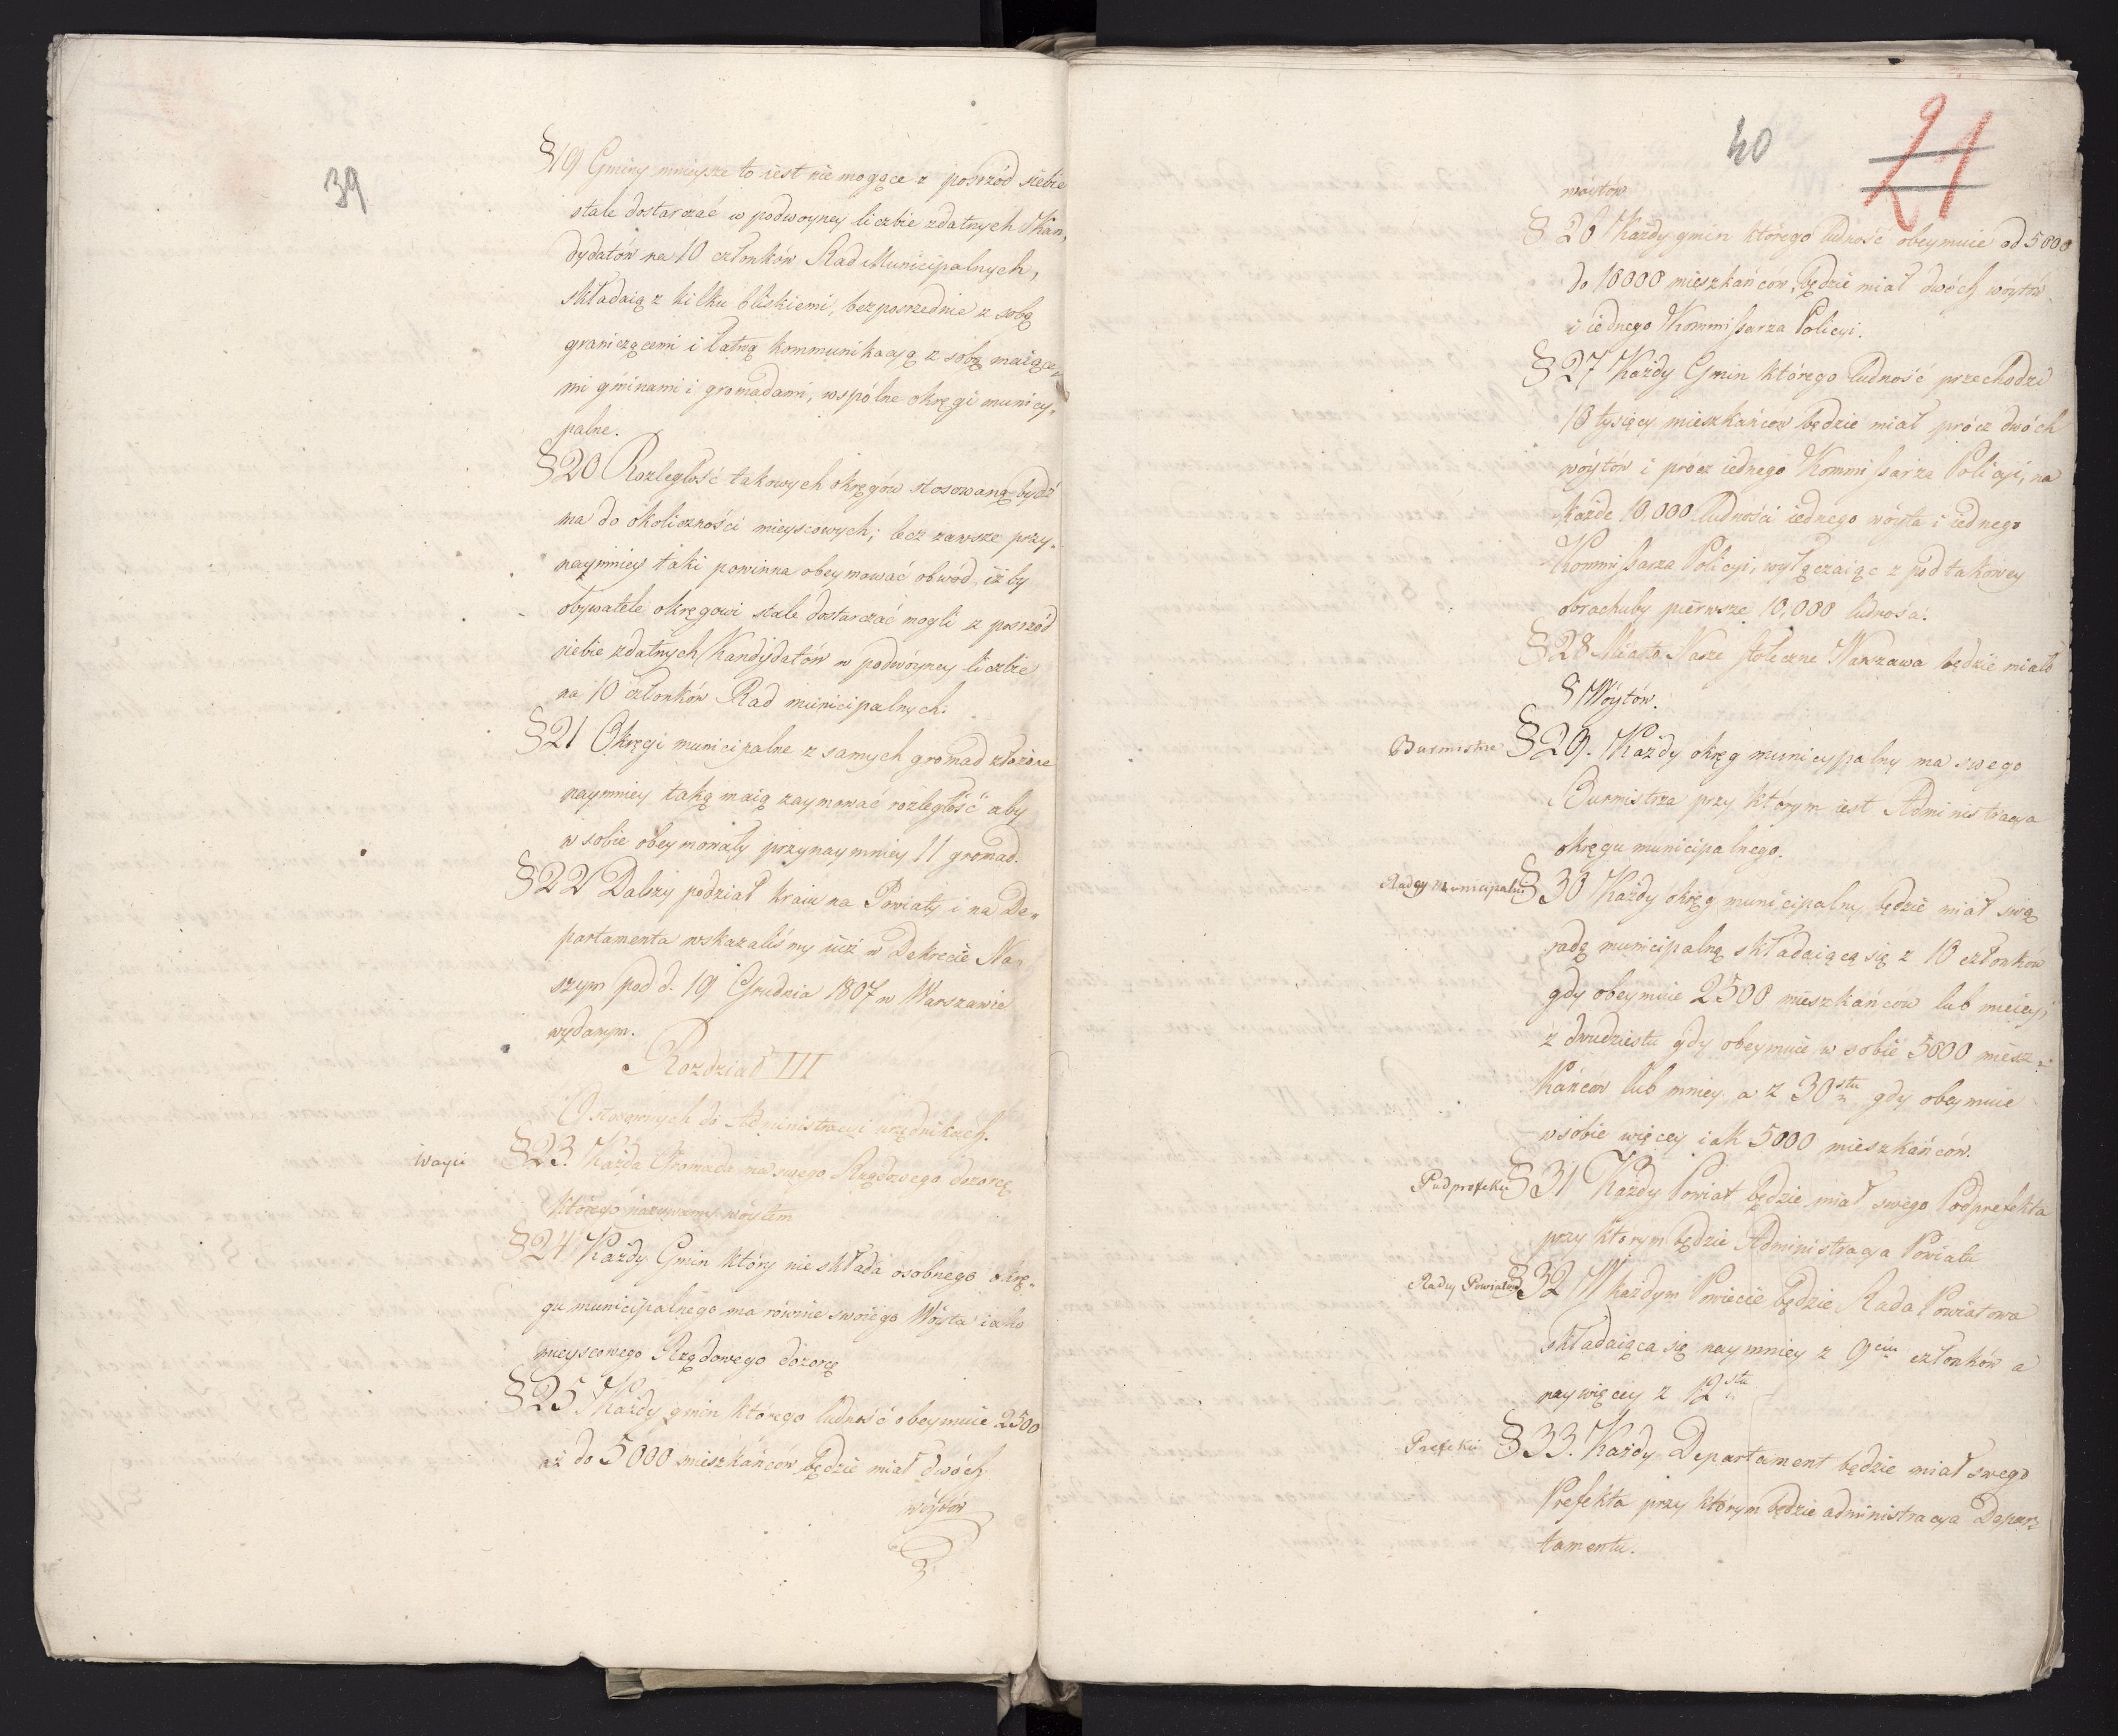 39
§19 Gminy mnieysze to iest nie mogące z posrzód siebie
stale dostarczać w podwoyney liczbie zdatnych Kan„
dydatów na 10 członków Rad Municipalnych,
składaią z kilku bliskiemi, bezposrzednie z sobą
graniczącemi i łatwą kommunikacyą z sobą maiące„
mi gminami i gromadami, wspólne okręgi municy„
palne.
§20 Rozległość takowych okręgów stosowaną bydź
ma do okoliczności mieyscowych; lecz zawsze przy„
naymniey taki powinna obeymować obwód, iż by
obywatele okręgowi stale dostarczać mogli z posrzód
siebie zdatnych Kandydatów w podwóyney liczbie
na 10 członków Rad municipalnych.
§21 Okręgi municipalne z samych gromad złożone
naymniey taką maią zaymować rozległość aby
w sobie obeymowały przynaymniey 11 gromad.
§22 Dalszy podział kraiu na Powiaty i na De„
partamenta wskazaliśmy iuż w Dekrecie Na„
szym pod d. 19 Grudnia 1807 w Warszawie
wydanym.
Rozdział III
O stosownych do Administracyi urzędnikach.
Woyci
§23. Każda Gromada ma swego Rządowego dozorcę
którego nazywamy woytem
§24 Każdy Gmin który nie składa osobnego okrę„
gu municipalnego ma równie swoiego Wóyta iako
mieyscowego Rządowego dozorcę
§25 Każdy gmin którego ludność obeymuie 2500
aż do 5000 mieszkańców będzie miał dwóch
wóytów
40
21
wóytów
§ 26 Każdy gmin którego ludność obeymuie od 5000
do 10000 mieszkańców, będzie miał dwóch wóytów
i iednego Kommissarza Policyi.
§ 27 Każdy Gmin którego ludność przechodzi
10 tysięcy mieszkańców będzie miał prócz dwóch
wóytów i prócz iednego Kommissarza Policyi, na
każde 10,000 ludności iednego wóyta i iednego
Kommissarza Policyi, wyłączaiąc z pod takowey
obrachuby pierwsze 10,000 ludności.
§ 28 Miasto Nasze stołeczne Warszawa będzie miało
8 Wóytów.
Burmistrze
§ 29. Każdy okręg municypalny ma swego
Burmistrza przy którym iest Administracya
okręgu municipalnego.
Radcy Municipalni
§ 30 Każdy okręg municipalny będzie miał swą
radę municipalną składaiącą się z 10 członków
gdy obeymuie 2500 mieszkańców lub mniey,
z dwudziestu gdy obeymuie w sobie 5000 miesz„
kańców lub mniey a z 30stu gdy obeymuie
w sobie więcey iak 5000 mieszkańców.
Podprefekci
§ 31 Każdy Powiat będzie miał swego Podprefekta
przy którym będzie Administracya Powiatu
Rady Powiatowe
§ 32 W każdym Powiecie będzie Rada Powiatowa
składaiąca się naymniey z 9ciu członków a
naywięcey z 12stu
Prefekci
§ 33. Każdy Departament będzie miał swego
Prefekta przy którym będzie administracya Depar„
tamentu.